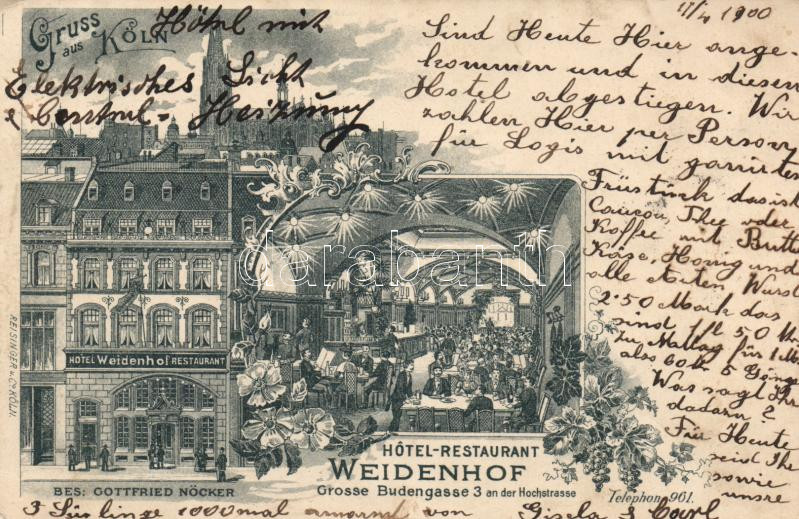 Gruss
aus
KÖLN
Hôtel mit
Elektrisches Licht
& Central-Heitzung
11/4 1900
Sind Heute Hier ange-
kommen und in diesen
Hotel abgestiegen. Wir
zahlen Hier per Person
für Logis mit garnirten
Früstück das ist
Cacao, Thee oder
Koffe mit Butter
Käse, Honig und
alle Arten Wurst
2·50 Mark das
sind 1 fl 50
zu Mattag für 1 M
also 60 k 5 Gänge
Was sagt Ihr
dadarn?
Für Heute
seid Ihr
sowie
unsre
3 1000mal umarmt von Gisela & Carl
HOTEL Weidenhof RESTAURANT
REISINGER u. Co KÖLN.
darabanth
HÔTEL-RESTAURANT
WEIDENHOF
Grosse Budengasse 3 an der Hochstrasse
BES: GOTTFRIED NÖCKER
Telephon 961.